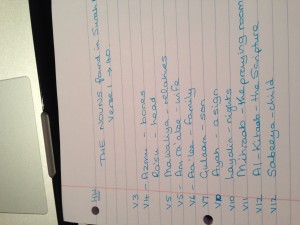 THE NOUNS found in Surah
Verse 1 → 40
V3
V4 - Azmu - bones
Ra'su - head
V5 Mawaliya - relatives
V5 - Amra'atee - wife
V6 - Aa'lee - family
V7 Gulaam - son
V10 Ayah - a sign
V10 Layalin - nights
V11 Mihraab - the praying room
V12 Al-Kitaab - the Scripture
V12 Sabeeya - child